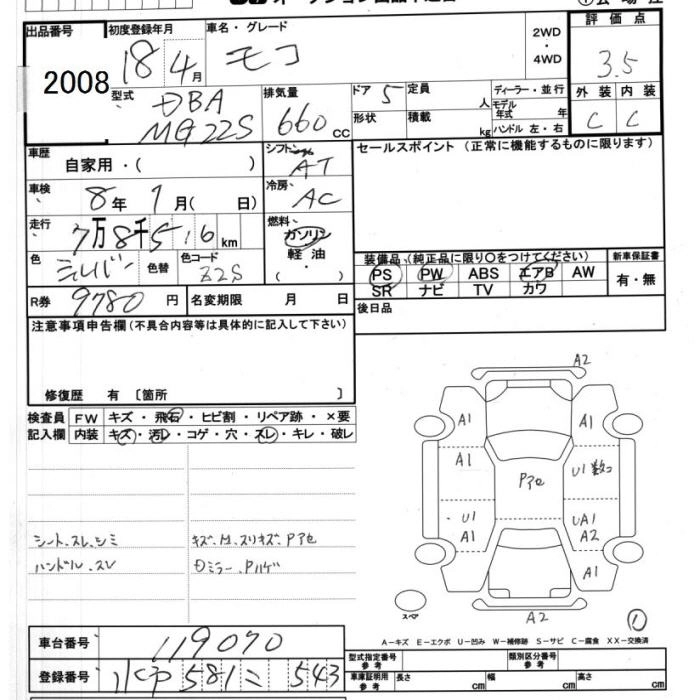 出品番号 初度登録年月 車名・グレード 2WD・4WD 評価点
2008 18年 4月 モコ 3.5
型式 DBA MG22S 排気量 660 cc ドア 5 定員 人 ディーラー・並行 外装 内装
形状 積載 kg モデル年式 年 C C
ハンドル 左・右
車歴 自家用・( ) シフト AT セールスポイント (正常に機能するものに限ります)
車検 8年 1月( 日) 冷房 AC
走行 7万8千5 16 km 燃料 ガソリン
色 シルバー 色替 色コード Z2S 軽油 ・( )
装備品 (純正品に限り〇をつけてください) 新車保証書
PS PW ABS エアB AW 有・無
SR ナビ TV カワ
R券 9780 円 名変期限 月 日 後日品
注意事項申告欄(不具合内容等は具体的に記入して下さい)
修復歴 有 〔箇所 〕
検査員 FW キズ・飛石・ヒビ割・リペア跡・×要
記入欄 内装 キズ・汚レ・コゲ・穴・スレ・キレ・破レ
シート.スレ.シミ
ハンドル.スレ
スリキズ P
ミラー.Pハゲ
A2
A1 A1
A1 U1 数コ
U1 UA1
A1 A2
A1
A2
スペア
1
A－キズ E－エクボ U－凹み W－補修跡 S－サビ C－腐食 XX－交換済
車台番号 119070
登録番号 581 ニ 543
型式指定番号 参考 類別区分番号 参考
車庫証明用 参考 長さ cm 幅 cm 高さ cm